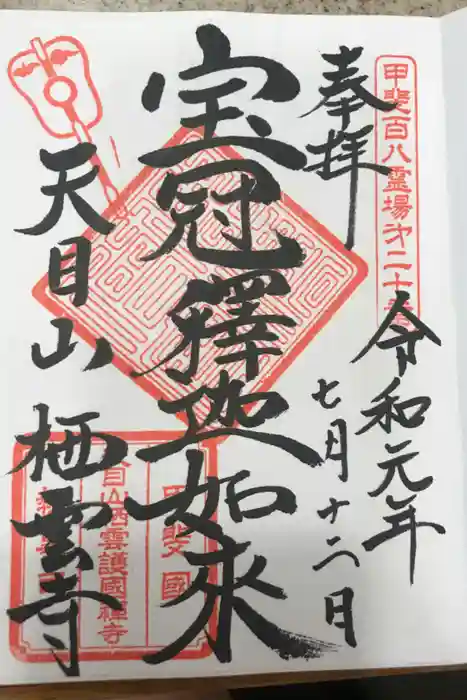 甲斐百八霊場第二十番
奉拝
令和元年
七月十二日
宝冠釋迦如來
天目山
栖雲寺
甲斐國
天目山栖雲護國禅寺